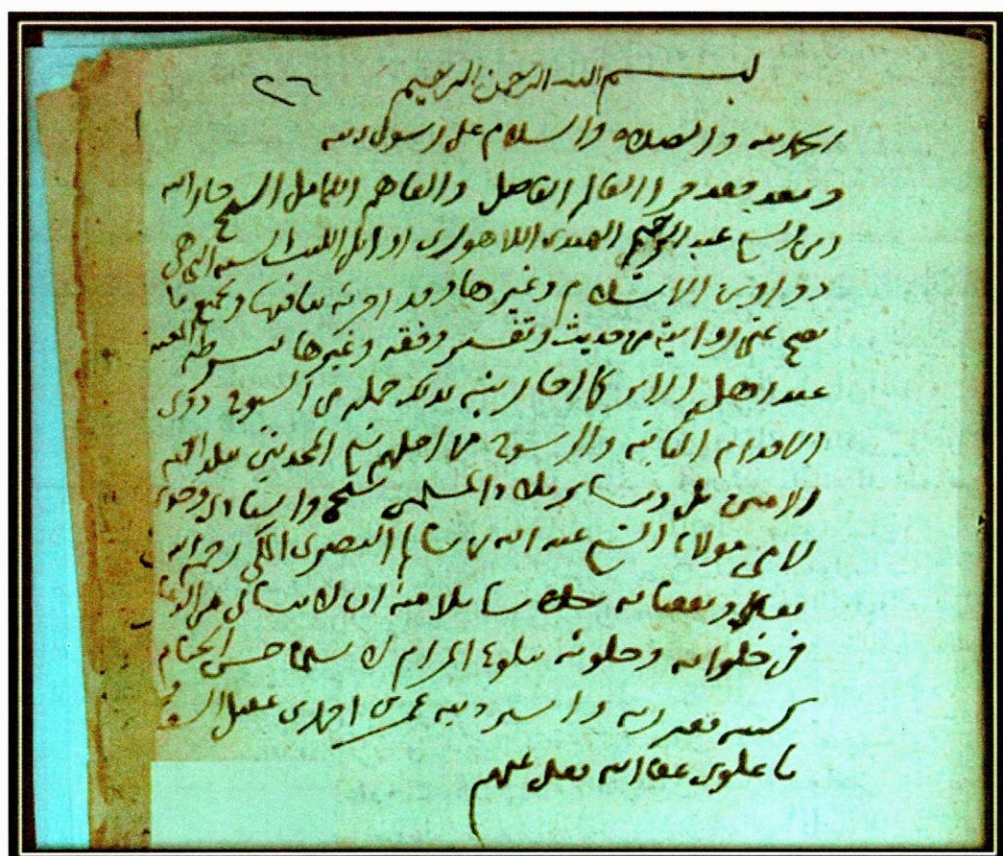 ٢٦ بسم الله الرحمن الرحيم
الحمد لله والصلاة والسلام على رسول الله
وبعد فقد قرا العالم الفاضل والفاهم الكامل الشيخ جار الله
بن الشيخ عبد الرحيم الهندى اللاهورى اوائل الكتب الستة التي هي
دواوين الاسلام وغيرها وقد اجزته بباقيها وبجميع ما
يصح عنى روايته من حديث وتفسير وفقه وغيرها بشرطه المعتبر
عند اهل الاثر كما اجازنى بذلك جملة من الشيوخ ذوى
الاقدام الثابتة والرسوخ من اجلهم خاتمة المحدثين ببلد الله
الامين بل وسائر بلاد المسلمين شيخى واستاذى وجدى
لامى مولانا الشيخ عبد الله بن سالم البصرى المكى رحمه الله
تعالى ونفعنا به سائلا منه ان لا ينسانى من الدعا
فى خلواته وجلواته ببلوغ المرام لا سيما حسن الختام
كتبه فقير ربه واسير ذنبه عمر بن احمد بن عقيل السقاف
با علوى عفا الله تعالى عنهم